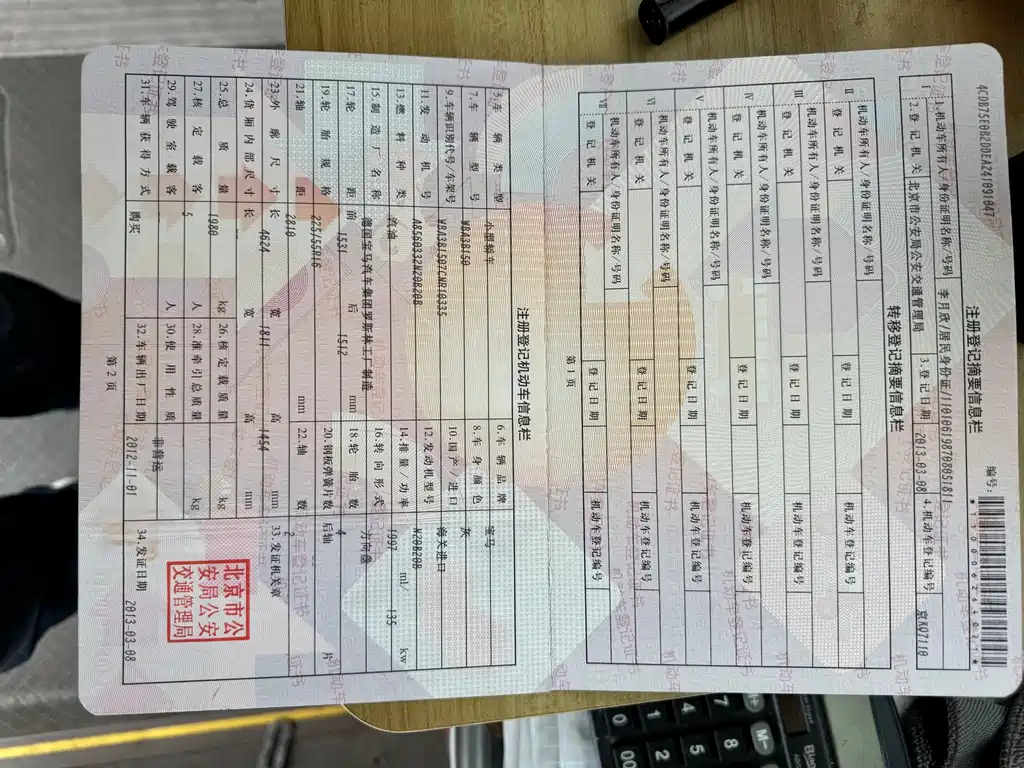 4CDB75E0B2DDEA241091047
注册登记摘要信息栏
编号:
*110006264021*
I
1.机动车所有人/身份证明名称/号码 李月欣/居民身份证/110106198708051811
2.登记机关 北京市公安局公安交通管理局 3.登记日期 2013-03-08 4.机动车登记编号 京KQ7110
转移登记摘要信息栏
II 机动车所有人/身份证明名称/号码
登记机关 登记日期 机动车登记编号
III 机动车所有人/身份证明名称/号码
登记机关 登记日期 机动车登记编号
IV 机动车所有人/身份证明名称/号码
登记机关 登记日期 机动车登记编号
V 机动车所有人/身份证明名称/号码
登记机关 登记日期 机动车登记编号
VI 机动车所有人/身份证明名称/号码
登记机关 登记日期 机动车登记编号
VII 机动车所有人/身份证明名称/号码
登记机关 登记日期 机动车登记编号
第1页
注册登记机动车信息栏
5.车辆类型 小型轿车 6.车辆品牌 宝马
7.车辆型号 WBA3B150 8.车身颜色 灰
9.车辆识别代号/车架号 WBA3B1507CNR10335 10.国产/进口 海关进口
11.发动机号 A8560332N20B20B 12.发动机型号 N20B20B
13.燃料种类 汽油 14.排量/功率 1997 ml/ 135 kw
15.制造厂名称 德国宝马汽车集团罗斯林工厂制造 16.转向形式 方向盘
17.轮距 前 1531 后 1512 mm 18.轮胎数 4
19.轮胎规格 225/55R16 20.钢板弹簧片数 后轴 片
21.轴距 2810 mm 22.轴数 2
23.外廓尺寸 长 4624 宽 1811 高 1454 mm 33.发证机关章
24.货厢内部尺寸 长 宽 高 mm
25.总质量 1980 kg 26.核定载质量 kg
27.核定载客 5 人 28.准牵引总质量 kg
29.驾驶室载客 人 30.使用性质 非营运
31.车辆获得方式 购买 32.车辆出厂日期 2012-11-01 34.发证日期 2013-03-08
北京市公
安局公安
交通管理局
第2页
7
8
M-
4
5
1
2
0
00